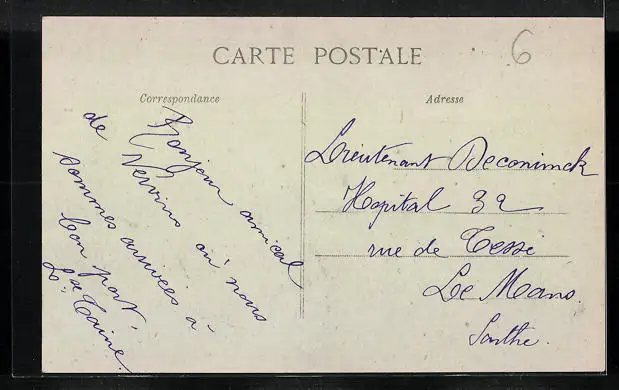 CARTE POSTALE
6
Correspondance
Bonjour amical
de Vervins où nous
sommes arrivées à
bon port.
L. Taine.
Adresse
Lieutenant Deconinck
Hopital 32
rue de Tessé
Le Mans.
Sarthe.